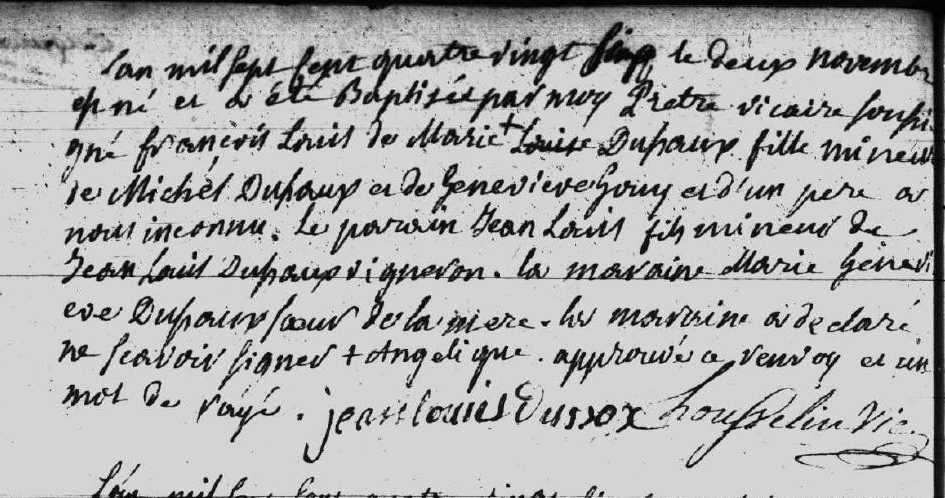 L'an mil sept cent quatre vingt cinq le deux novembr
est né et a été Baptisé par moy Pretre vicaire soussi
gné françois Louis de Marie + Louise Dussaux fille mineur
de Michel Dussaux et de Genevieve Gouy et d'un pere a
nous inconnu. Le parain Jean Louis fils mineur de
Jean Louis Dussaux vigneron. la maraine Marie Genevi
eve Dussaux soeur de la mere. la maraine a declaré
ne scavoir signer + Angelique. approuvé ce renvoy et un
mot de rayé. jean louis Dussox Vic.
L'an mil sept cent quatre vingt